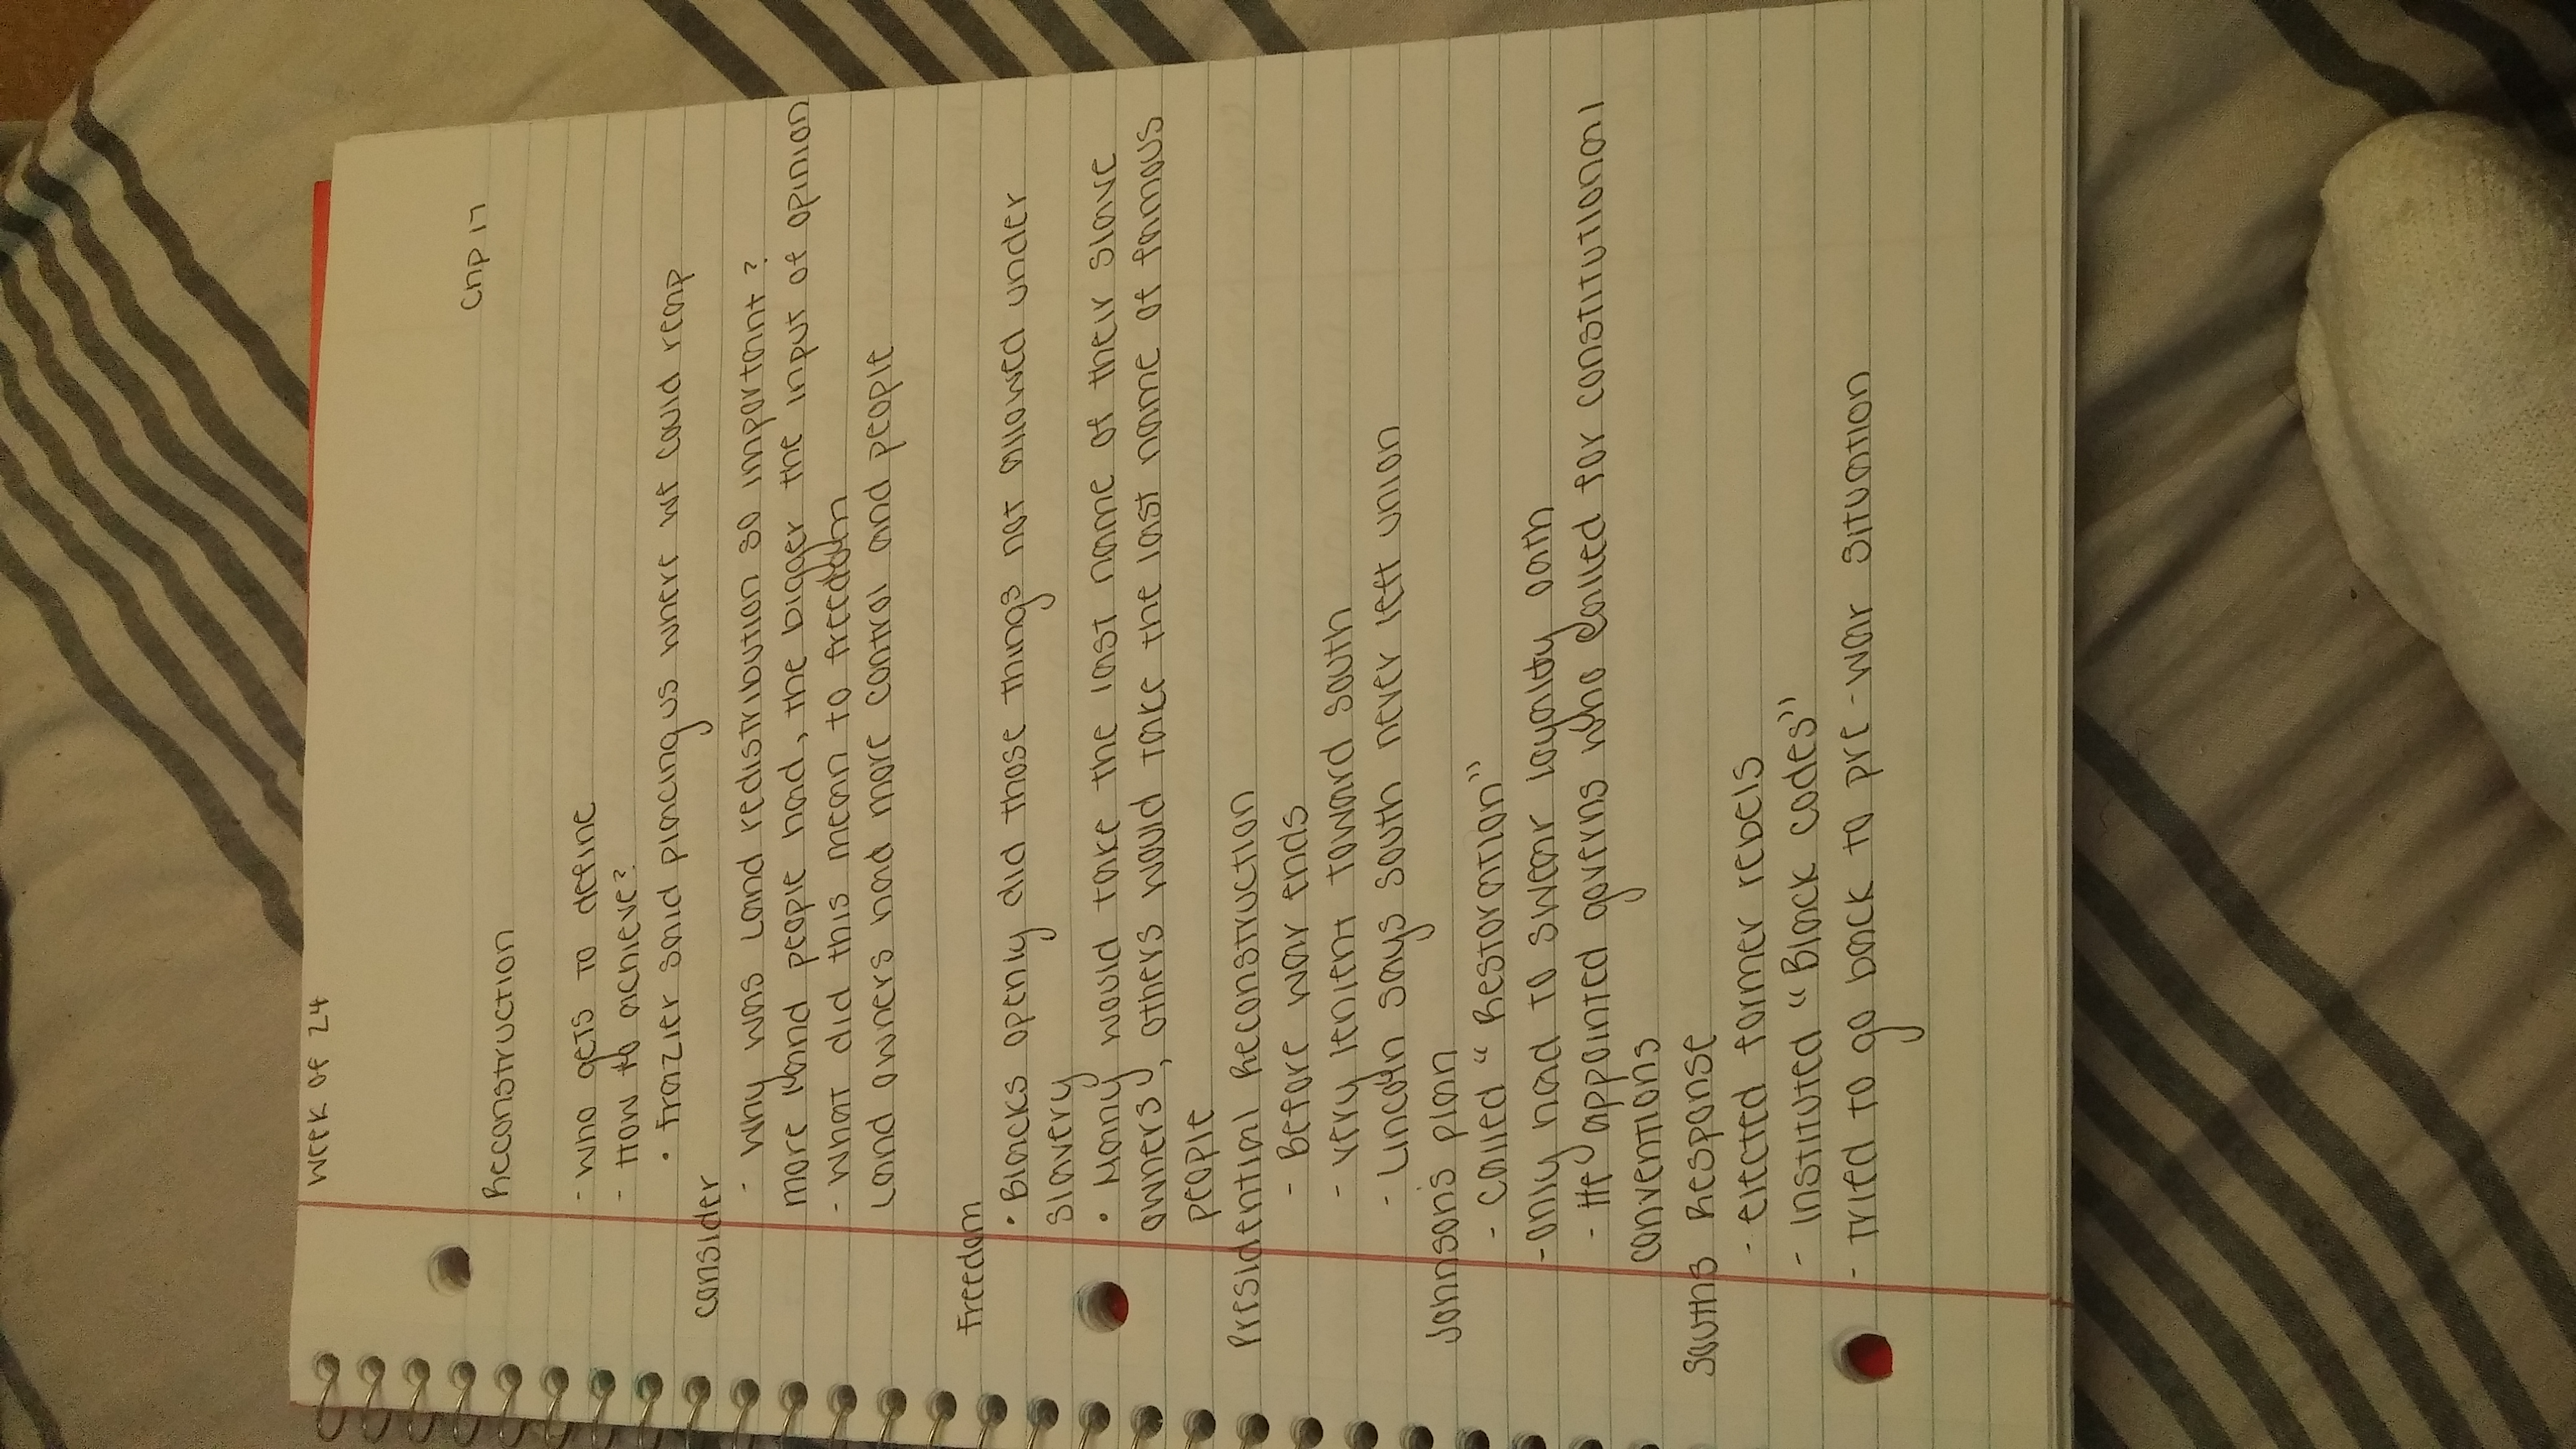 Week of 24
Chp 17
Reconstruction
- Who gets to define
- How to achieve?
• Frazier said placing us where we could reap
Consider
- Why was Land redistribution so important?
more land people had, the bigger the input of opinion
- What did this mean to freedom
Land owners had more control and people
Freedom
• Blacks openly did those things not allowed under
slavery
• Many would take the last name of their slave
owners, others would take the last name of famous
people
Presidential Reconstruction
- Before war ends
- very lenient toward South
- Lincoln says South never left union
Johnsons plan
- called "Restoration"
- only had to swear loyalty oath
- He appointed governs who called for constitutional
conventions
Souths Response
- elected former rebels
- Instituted "Black codes"
- tried to go back to pre-war situation